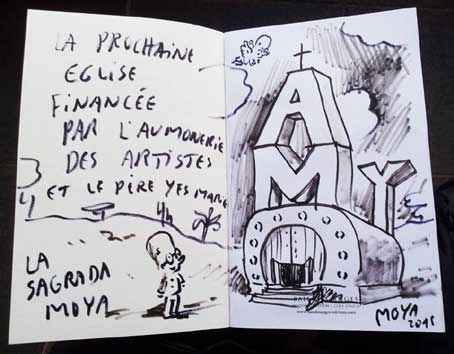 LA PROCHAINE
EGLISE
FINANCÉE
PAR L'AUMONERIE
DES ARTISTES
ET LE PÈRE YES MARIE
LA
SAGRADA
MOYA
A
M Y
MOYA
2015